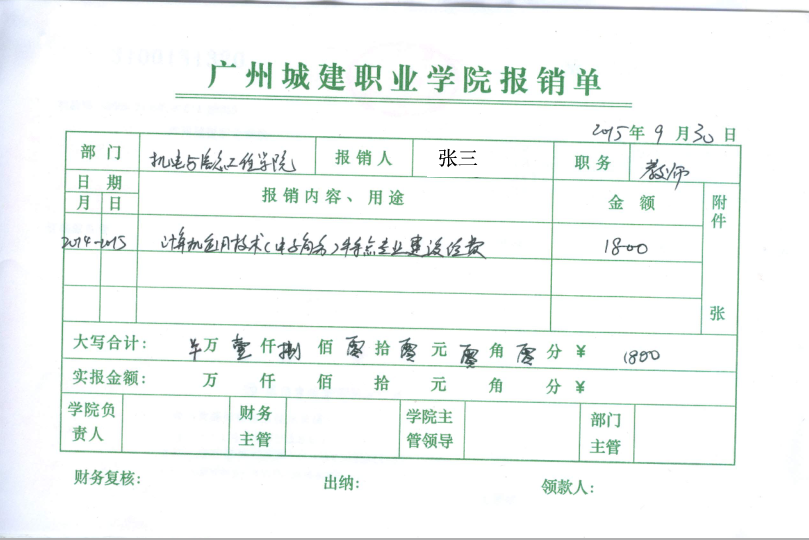 广州城建职业学院报销单
2015年 9 月 30 日
部门 机电与信息工程学院 报销人 张三 职务 教师
日期 报销内容、用途 金额 附件 张
月 日
2014-2015 计算机应用技术(电子商务)特点专业建设经费 1800
大写合计: 万 壹 仟 捌 佰 零 拾 零 元 零 角 零 分 ¥ 1800
实报金额: 万 仟 佰 拾 元 角 分 ¥
学院负责人 财务主管 学院主管领导 部门主管
财务复核: 出纳: 领款人: